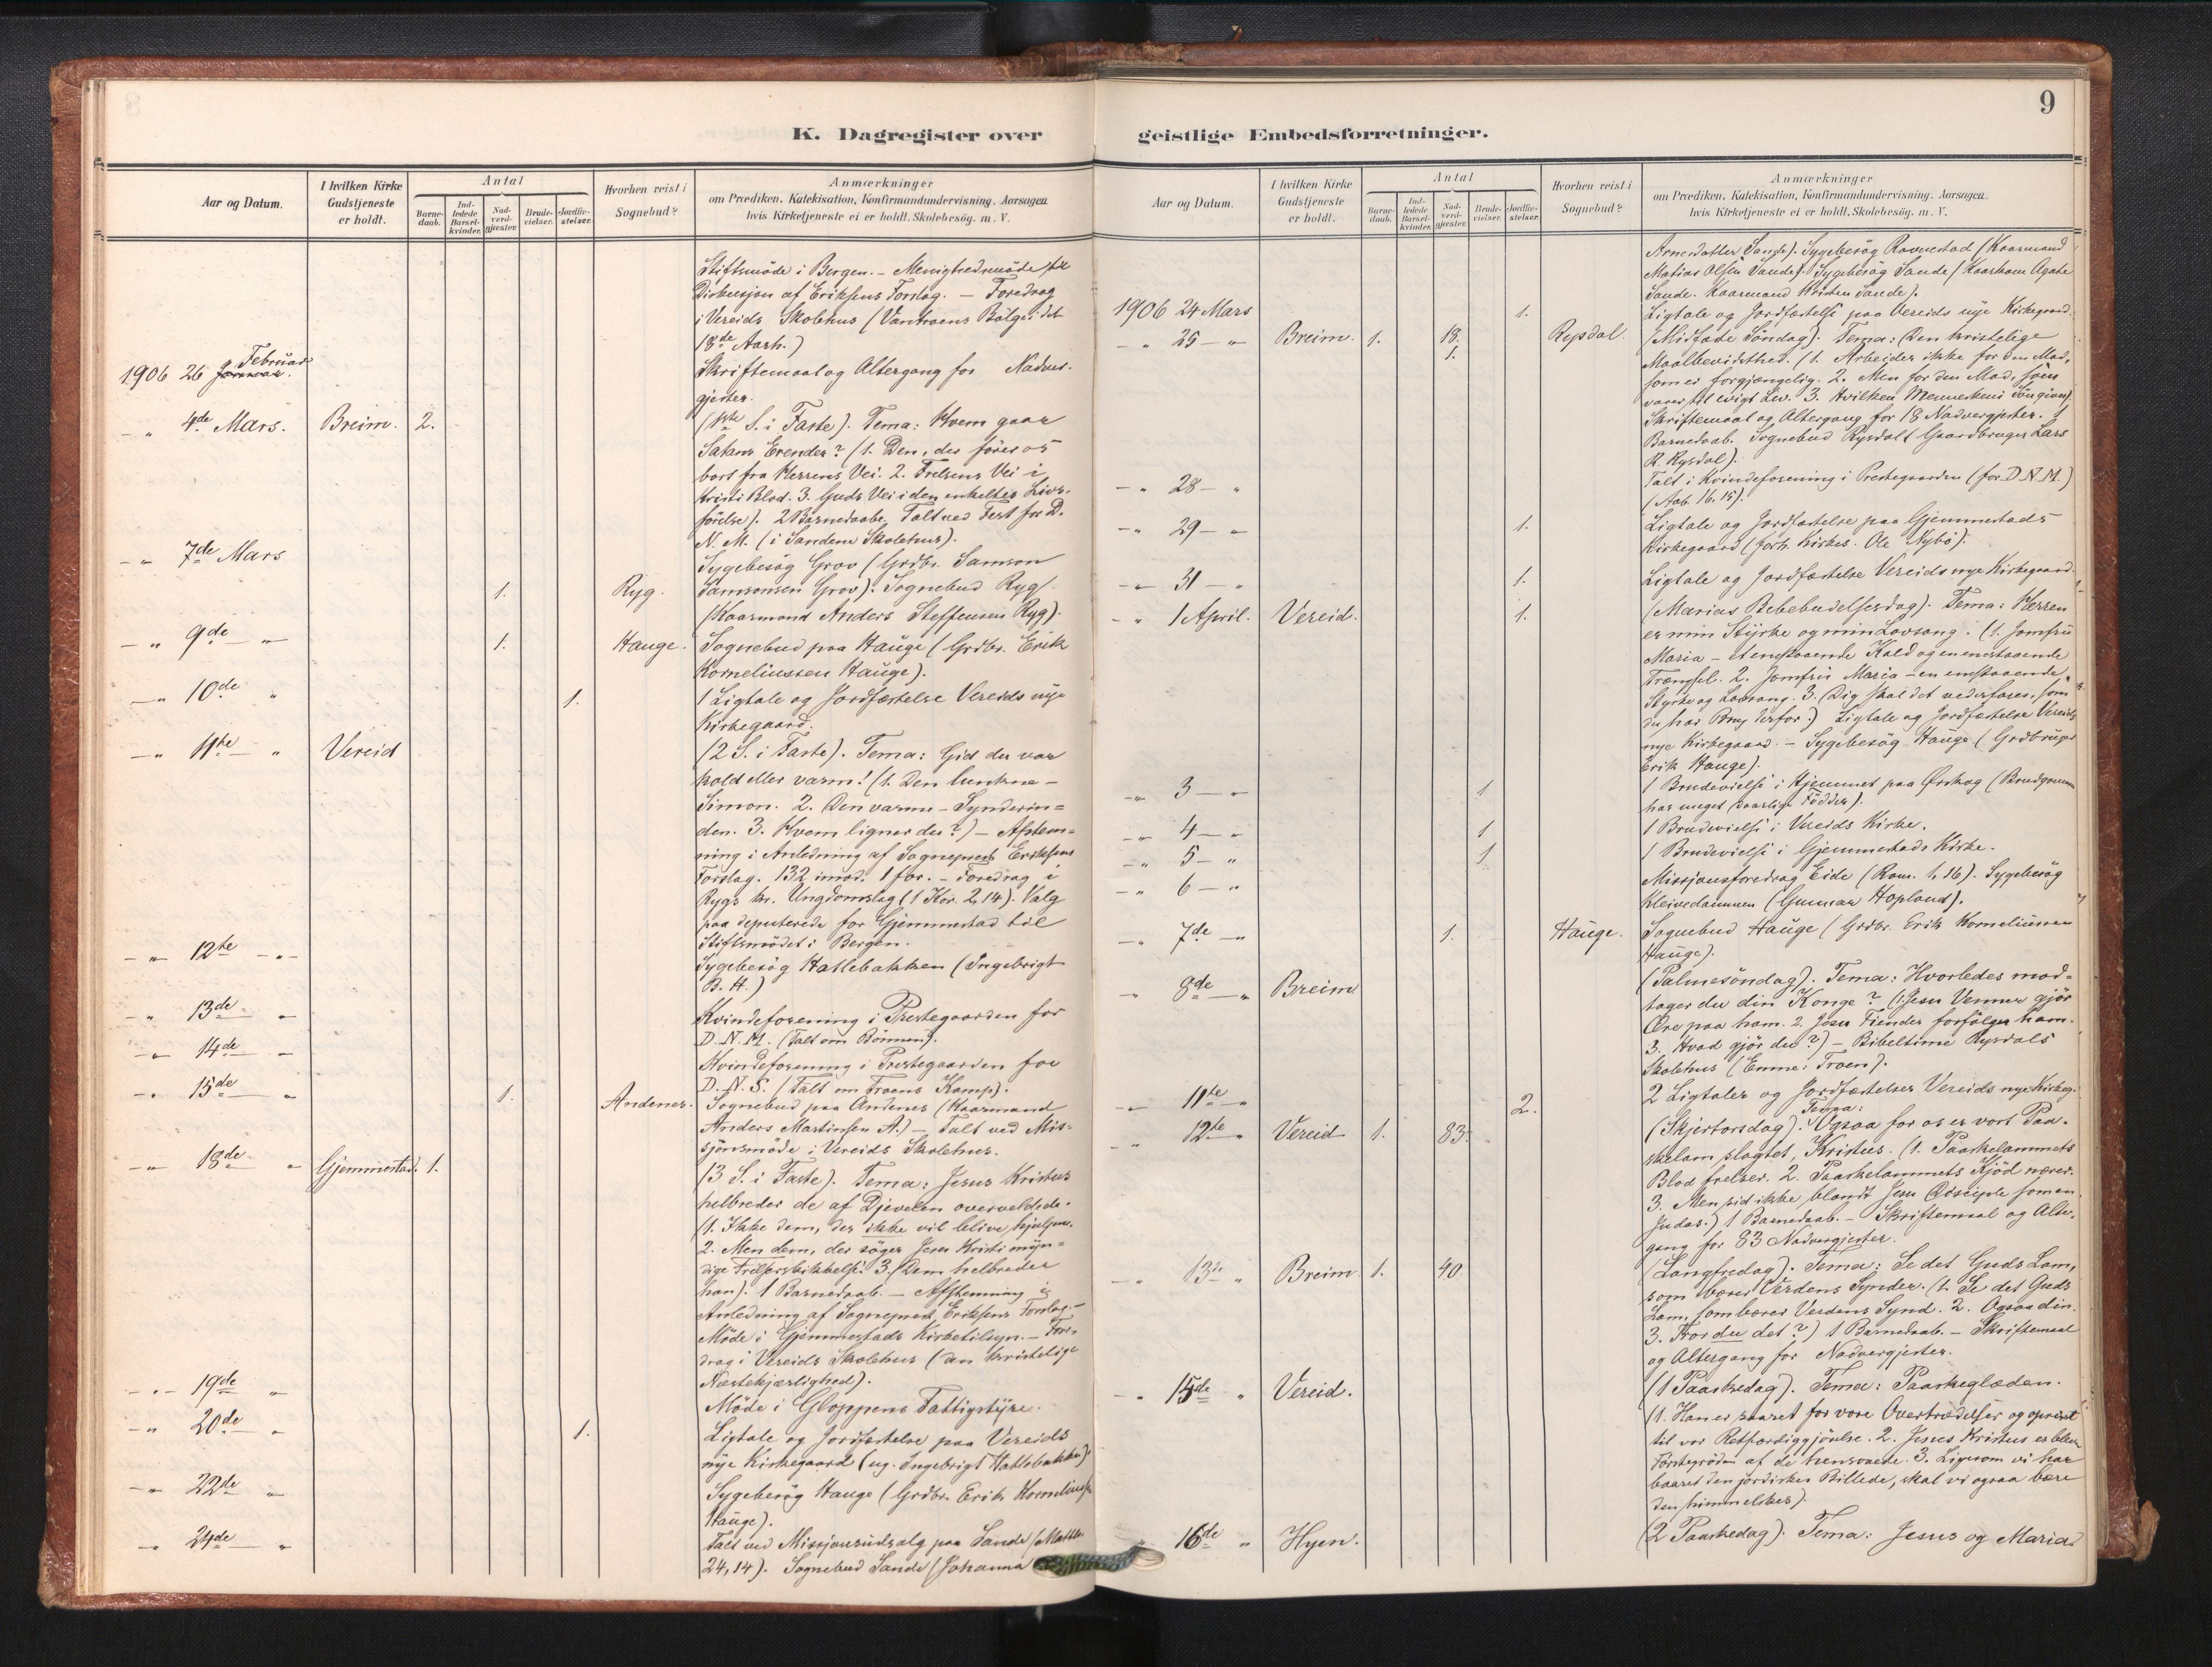 8
K. Dagregister over
Aar og Datum.
I hvilken Kirke Gudstjeneste er holdt.
Antal
Barne-daab.
Ind-ledede Barsel-kvinder.
Nad-verd-gjæster.
Brude-vielser.
Jordfæ-stelser.
Hvorhen reist i Sognebud?
Anmærkninger
om Prædiken, Katekisation, Konfirmandundervisning, Aarsagen
hvis Kirketjeneste ei er holdt, Skolebesøg. m. V.
Stiftsmöde i Bergen. – Menighedsmöde til
Diskusjon af Eriksens Forslag. – Foredrag
i Vereids Skolehus (Vantroens Bölge i det
18de Aarh.)
1906 26 Februar Januar. Skriftemaal og Altergang for Nadver-
gjester.
– " 4de Mars. Breim. 2. (1ste S. i Faste). Tema: Hvem gaar
Satans Erender? (1. Den, der förer os
bort fra Herrens Vei. 2. Frelsens Vei i
Kristi Blod. 3. Guds Vei i den enkeltes Livs-
förelse). 2 Barnedaabe. Talt ved Fest for D.
N. M. (i Sandene Skolehus).
– " 7de Mars Sygebesög Grov (Grdbr. Samson
1. Ryg. Samsonsen Grov). Sognebud Ryg
(Kaarmand Anders Steffensen Ryg).
– " 9de – " 1. Hauge. Sognebud paa Hauge (Grdbr. Erik
Korneliussen Hauge).
– " 10de " 1. 1 Ligtale og Jordfæstelse Vereids nye
Kirkegaard.
– " 11te – " Vereid (2 S. i Faste). Tema: Gid du var
kold eller varm! (1. Den lunkne –
Simon. 2. Den varme – Synderin=
den. 3. Hvem ligner du?) – Afstem=
ning i Anledning af Sogneprest Eriksens
Forslag. 132 imod. 1 for. – Foredrag i
Rygs kr. Ungdomslag (1 Kor. 2,14). Valg
paa deputerede for Gjemmestad til
Stiftsmödet i Bergen.
– " 12te – " Sygebesög Hatlebakken (Ingebrigt
B. H.)
– " 13de – " Kvindeforening i Prestegaarden for
D. N. M. (Talt om Bönnen).
– " 14de – " Kvindeforening i Prestegaarden for
D. N. S. (Talt om Troens Kamp).
– " 15de – " 1. Andenes. Sognebud paa Andenes (Kaarmand
Anders Martinsen A.) – Talt ved Mis-
sjonsmöde i Vereids Skolehus.
– " 18de – " Gjemmestad. 1. (3 S. i Faste). Tema: Jesus Kristus
helbreder de af Djevelen overveldede.
(1. Ikke dem, der ikke vil blive hjulpne.
2. Men dem, der söger Jesu Kristi myn=
dige Frelserskikkelse. 3. Dem helbreder
han). 1 Barnedaab. – Afstemning i
Anledning af Sogneprest Eriksens Forslag. –
Möde i Gjemmestads Kirketilsyn. – Fore-
drag i Vereids Skolehus (den kristelige
Næstekjærlighed).
– " – 19de " Möde i Gloppens Fattigstyre.
– " 20de " 1. Ligtale og Jordfæstelse paa Vereids
nye Kirkegaard (ug. Ingebrigt Hatlebakke).
– " 22de " Sygebesög Hauge (Grdbr. Erik Korneliuss.
Hauge).
– " 24de " Talt ved Missjonsudsalg paa Sande (Matth.
24,14). Sognebud Sande (Johanna
9
geistlige Embedsforretninger.
Aar og Datum.
I hvilken Kirke Gudstjeneste er holdt.
Antal
Barne-daab.
Ind-ledede Barsel-kvinder.
Nad-verd-gjæster.
Brude-vielser.
Jordfæ-stelser.
Hvorhen reist i Sognebud?
Anmærkninger
om Prædiken, Katekisation, Konfirmandundervisning, Aarsagen
hvis Kirketjeneste ei er holdt, Skolebesøg. m. V.
Arnesdatter Sande). Sygebesög Ravnestad (Kaarmand
Matias Olsen Sande). Sygebesög Sande (Kaarkone Agate
Sande. Kaarmand Kristen Sande).
1906 24 Mars 1. Ligtale og Jordfæstelse paa Vereids nye Kirkegaard.
– " 25 – " Breim. 1. 18. 1. Rysdal. (Midfaste Söndag). Tema: Den kristelige
Maalbevidsthed. (1. Arbeider ikke for den Mad,
som er forgjængelig. 2. Men for den Mad, som
varer til evigt Lev. 3. Hvilken Menneskens Sön giver).
Skriftemaal og Altergang for 18 Nadvergjester. 1
Barnedaab. Sognebud Rysdal (Gaardbruger Lars
R. Rysdal).
– " 28 – " Talt i Kvindeforening i Prestegaarden (for D. N. M.)
(Aab. 16,15).
– " 29 – " 1. Ligtale og Jordfæstelse paa Gjemmestads
Kirkegaard (forh. Kirkes. Ole Nybö).
– " 31 – " 1. Ligtale og Jordfæstelse Vereids nye Kirkegaard.
– " 1 April. Vereid. 1. (Marias Bebudelsesdag). Tema: Herren
er min Styrke og min Lovsang. (1. Jomfru
Maria – et enestaaende Kald og en enestaaende
Trængsel. 2. Jomfru Maria – en enestaaende
Styrke og Lovsang. 3. Dig skal det vederfares, som
du har Brug derfor.) Ligtale og Jordfæstelse Vereids
nye Kirkegaard. – Sygebesög Hauge (Grdbruger
Erik Hauge).
– " 3 – " 1 1 Brudevielse i Hjemmet paa Örskog (Brudgommen
har meget daarlige Födder).
– " 4 – " 1 1 Brudevielse i Vereids Kirke.
– " 5 – " 1 1 Brudevielse i Gjemmestads Kirke.
– " 6 – " Missjonsforedrag Eide (Rom. 1,16). Sygebesög
Kleivedammen (Gunnar Hopland).
– " 7de – " 1. Hauge. Sognebud Hauge (Grdbr. Erik Korneliussen
Hauge).
– " 8de – " Breim (Palmesöndag). Tema: Hvorledes mod=
tager du din Konge? (1. Jesu Venner gjör
Ære paa ham. 2. Jesu Fiender forfölger ham.
3. Hvad gjör du?) – Bibeltime Rysdals
Skolehus (Emne: Troen).
– " 11te – " 2. 2 Ligtaler og Jordfæstelser Vereids nye Kirkeg.
– " 12te – " Vereid 1. 83. (Skjertorsdag). Tema: Ogsaa for os er vort Paa-
skelam slagtet, Kristus. (1. Paaskelammets
Blod frelser. 2. Paaskelammets Kjöd nærer.
3. Men sid ikke blandt Jesu Disciple som en
Judas.) 1 Barnedaab. – Skriftemaal og Alter-
gang for 83 Nadvergjester.
– " 13de " Breim 1. 40 (Langfredag). Tema: Se det Guds Lam,
som bærer Verdens Synder. (1. Se det Guds
Lam, som bærer Verdens Synd. 2. Ogsaa din.
3. Tror du det?) 1 Barnedaab. – Skriftemaal
og Altergang for Nadvergjester.
– " 15de " Vereid. (1 Paaskedag). Tema: Paaskeglæden.
(1. Han er saaret for vore Overtrædelser og opreist
til vor Retfærdiggjörelse. 2. Jesus Kristus er bleven
Förstegröden af de hensovede. 3. Ligesom vi har
baaret den jordiskes Billede, skal vi ogsaa bære
den himmelskes).
" 16de " Hyen. (2 Paaskedag). Tema: Jesus og Maria